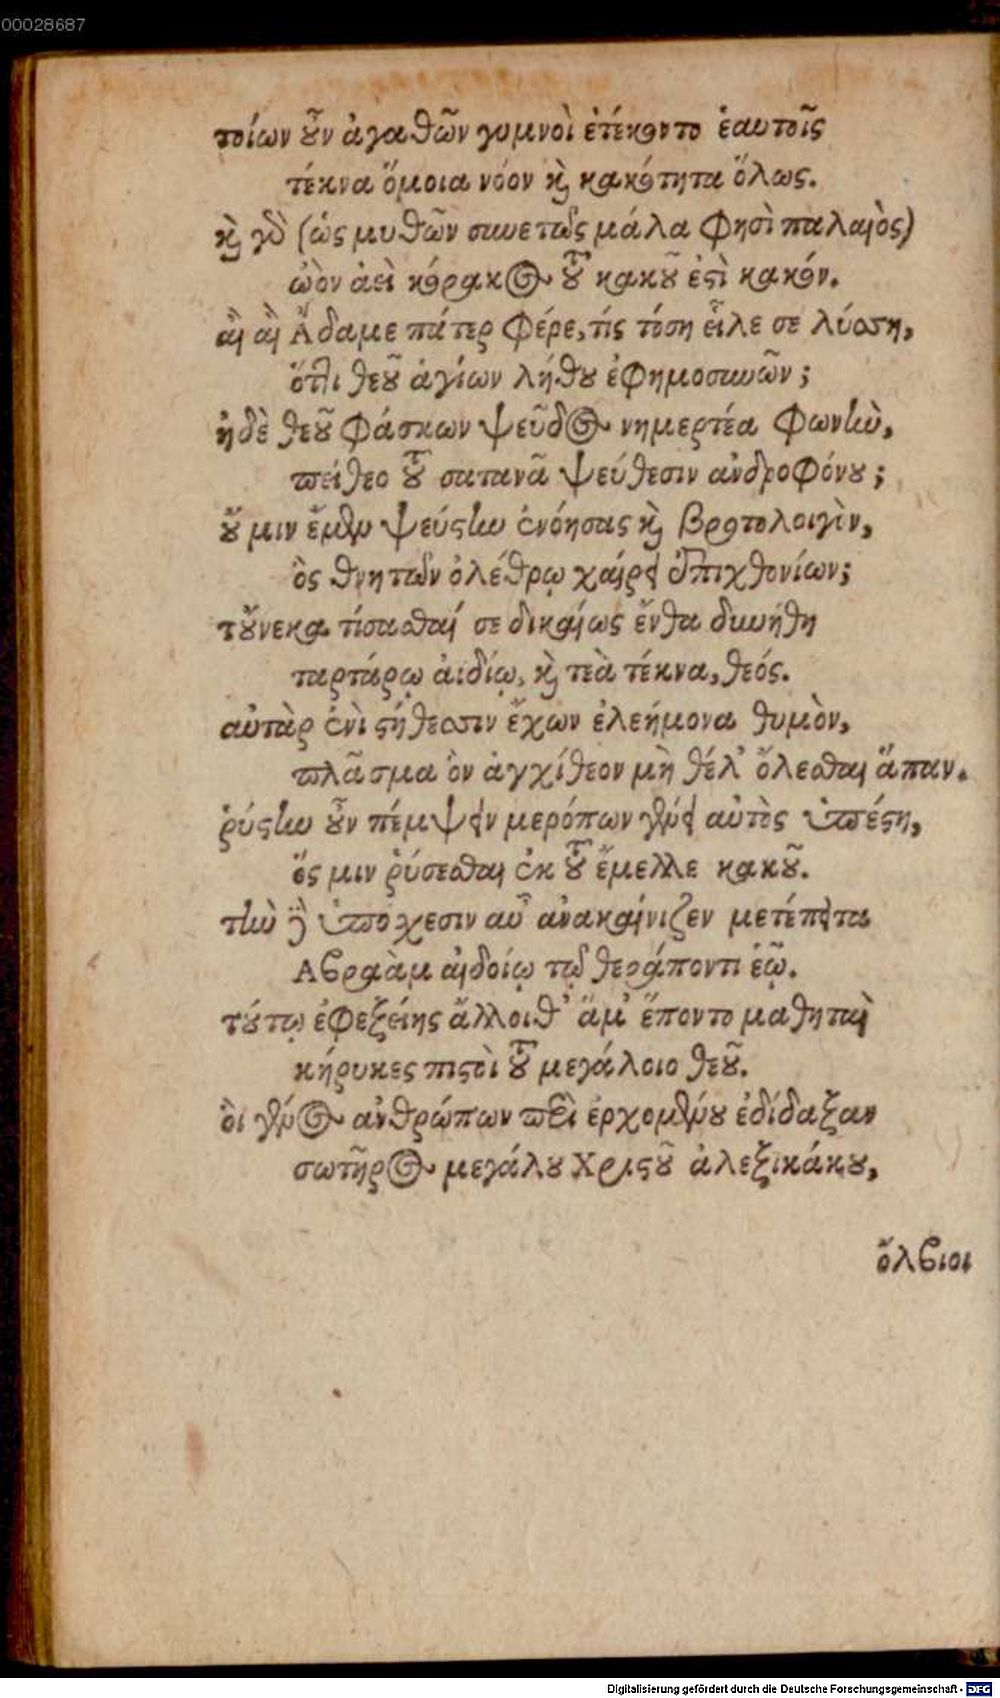 00028687
τοίων οὖν ἀγαθῶν γυμνοὶ ἐτέκοντο ἑαυτοῖς
τέκνα ὅμοια νόον καὶ κακότητα ὅλως.
καὶ γὸ (ὡς μυθῶν συνετῶς μάλα φησὶ παλαιὸς)
ὠὸν ἀεὶ κόρακος τοῦ κακοῦ ἐστὶ κακόν.
αἲ αἲ Ἄδαμε πάτερ φέρε, τίς τόση εἷλε σε λύσση,
ὅτι θεοῦ ἁγίων λήθου ἐφημοσυνῶν;
ἠδὲ θεοῦ φάσκων ψεῦδος νημερτέα φωνὴν,
πείθεο τοῦ σατανᾶ ψεύθεσιν ἀνδροφόνου;
οὔ μιν ἔμεν ψεύστην ἐνόησας καὶ βροτολοιγὸν,
ὃς θνητῶν ὀλέθρῳ χαίρει ἐπιχθονίων;
τοὔνεκα τίσασθαί σε δικαίως ἔνθα δυνήθη
ταρτάρῳ ἀϊδίῳ, καὶ τεὰ τέκνα, θεός.
αὐτὰρ ἐνὶ στήθεσσιν ἔχων ἐλεήμονα θυμὸν,
πλᾶσμα ὃν ἀγχίθεον μὴ θέλ' ὄλεσθαι ἅπαν.
ῥύστην οὖν πέμψειν μερόπων γένει αὐτὸς ὑπέστη,
ὅς μιν ῥύσεσθαι ἐκ τοῦ ἔμελλε κακοῦ.
τὴν δὲ ὑπόσχεσιν αὖ ἀνακαίνιζεν μετέπειτα
Ἀβραὰμ αἰδοίῳ τῷ θεράποντι ἑῷ.
τούτῳ ἐφεξείης ἄλλοιθ' ἅμ' ἕποντο μαθηταὶ
κήρυκες πιστοὶ τοῦ μεγάλοιο θεοῦ.
οἳ γένος ἀνθρώπων περὶ ἐρχομένου ἐδίδαξαν
σωτῆρος μεγάλου Χριστοῦ ἀλεξικάκου,
ὄλβιοι
Digitalisierung gefördert durch die Deutsche Forschungsgemeinschaft - DFG